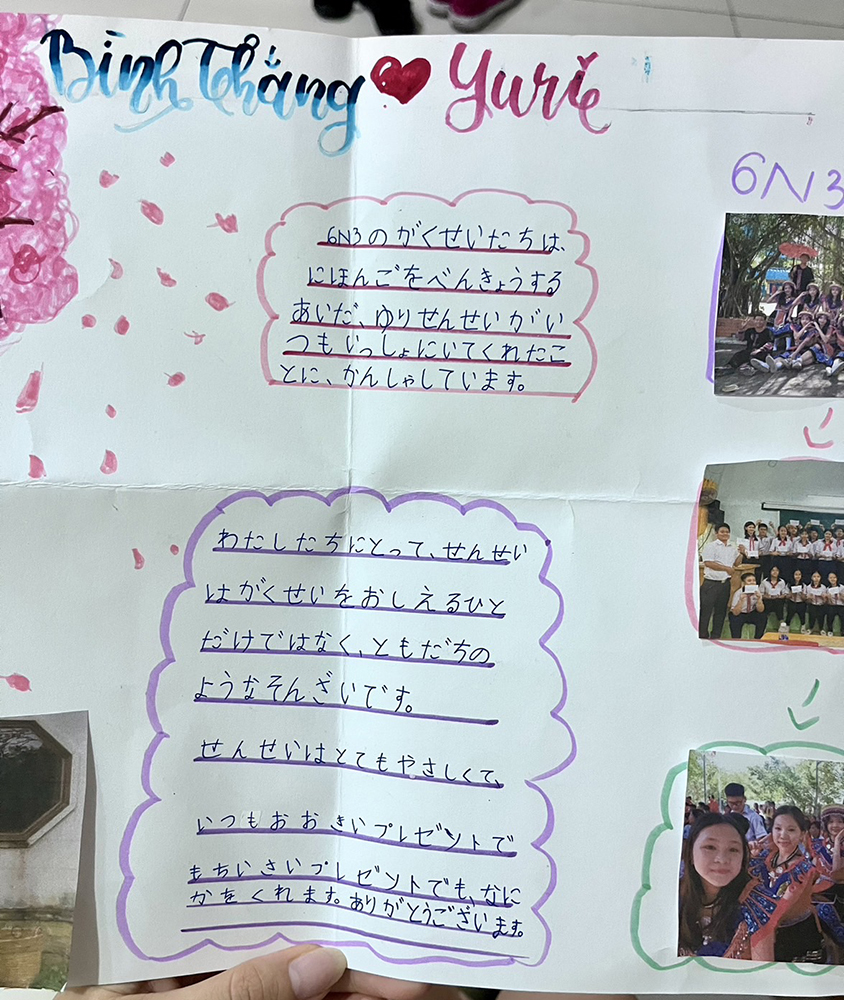 Bình Thắng ❤ Yuri
6N3
6N3のがくせいたちは、
にほんごをべんきょうする
あいだ、ゆりせんせいがい
つもいっしょにいてくれたこ
とに、かんしゃしています。
わたしたちにとって、せんせい
はがくせいをおしえるひと
だけではなく、ともだちの
ようなそんざいです。
せんせいはとてもやさしくて、
いつもおおきいプレゼントで
もちいさいプレゼントでも、なに
かをくれます。ありがとうございます。